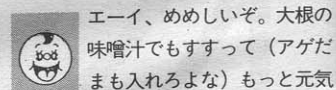 エーイ、めめしいぞ。大根の
味噌汁でもすすって（アゲだ
まも入れろよな）もっと元気